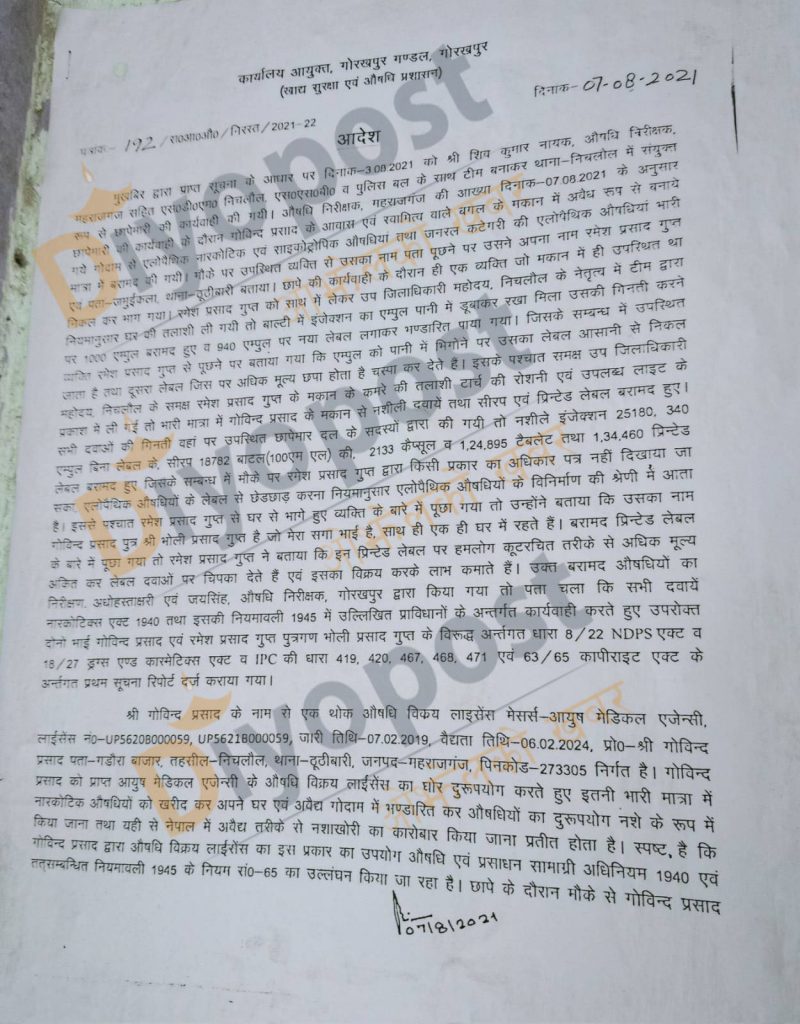 कार्यालय आयुक्त, गोरखपुर मण्डल, गोरखपुर
(खाद्य सुरक्षा एवं औषधि प्रशासन)
दिनाक- 07-08-2021
पत्रांक- 192 /स०आ०औ० /निरस्त/2021-22
आदेश
मुखबिर द्वारा प्राप्त सूचना के आधार पर दिनाक-3.08.2021 को श्री शिव कुमार नायक, औषधि निरीक्षक,
महराजगंज सहित एस०डी०एम० निचलौल, एस०एस०बी० व पुलिस बल के साथ टीम बनाकर थाना-निचलौल में संयुक्त
रूप से छापेमारी की कार्यवाही की गयी। औषधि निरीक्षक, महराजगंज की आख्या दिनाक-07.08.2021 के अनुसार
छापेमारी की कार्यवाही के दौरान गोविन्द प्रसाद के आवास एवं स्वामित्व वाले बगल के मकान में अवैध रूप से बनाये
गये गोदाम से एलोपैथिक नारकोटिक एवं साइकोट्रोपिक औषधियां तथा जनरल कटेगरी की एलोपैथिक औषधियां भारी
मात्रा में बरामद की गयी। मौके पर उपस्थित व्यक्ति से उसका नाम पता पूछने पर उसने अपना नाम रमेश प्रसाद गुप्त
एवं पता-जमुईकला, थाना-ठूठीबारी बताया। छापे की कार्यवाही के दौरान ही एक व्यक्ति जो मकान में ही उपस्थित था
निकल कर भाग गया। रमेश प्रसाद गुप्त को साथ में लेकर उप जिलाधिकारी महोदय, निचलौल के नेतृत्व में टीम द्वारा
नियमानुसार घर की तलाशी ली गयी तो बाल्टी में इंजेक्शन का एम्पुल पानी में डूबाकर रखा मिला उसकी गिनती करने
पर 1000 एम्पुल बरामद हुए व 940 एम्पुल पर नया लेबल लगाकर भण्डारित पाया गया। जिसके सम्बन्ध में उपस्थित
व्यक्ति रमेश प्रसाद गुप्त से पूछने पर बताया गया कि एम्पुल को पानी में भिगोने पर उसका लेबल आसानी से निकल
जाता है तथा दूसरा लेबल जिस पर अधिक मूल्य छपा होता है चस्पा कर देते है। इसके पश्चात समक्ष उप जिलाधिकारी
महोदय, निचलौल के समक्ष रमेश प्रसाद गुप्त के मकान के कमरे की तलाशी, टार्च की रोशनी एवं उपलब्ध लाइट के
प्रकाश में ली गई तो भारी मात्रा में गोविन्द प्रसाद के मकान से नशीली दवायें तथा सीरप एवं प्रिन्टेड लेबल बरामद हुए।
सभी दवाओं की गिनती वहां पर उपस्थित छापेमार दल के सदस्यों द्वारा की गयी तो नशीले इंजेक्शन 25180, 340
एम्पुल बिना लेबल के, सीरप 18782 बाटल(100एम एल) की, 2133 कैप्सूल व 1,24,895 टैबलेट तथा 1,34,460 प्रिन्टेड
लेबल बरामद हुए जिसके सम्बन्ध में मौके पर रमेश प्रसाद गुप्त द्वारा किसी प्रकार का अधिकार पत्र नहीं दिखाया जा
सका, एलोपैथिक औषधियों के लेबल से छेडछाड़ करना नियमानुसार एलोपैथिक औषधियों के विनिर्माण की श्रेणी में आता
है। इससे पश्चात रमेश प्रसाद गुप्त से घर से भागे हुए व्यक्ति के बारे में पूछा गया तो उन्होंने बताया कि उसका नाम
गोविन्द प्रसाद पुत्र श्री भोली प्रसाद गुप्त है जो मेरा सगा भाई है, साथ ही एक ही घर में रहते हैं। बरामद प्रिन्टेड लेबल
के बारे में पूछा गया तो रमेश प्रसाद गुप्त ने बताया कि इन प्रिन्टेड लेबल पर हमलोग कूटरचित तरीके से अधिक मूल्य
अंकित कर लेबल दवाओं पर चिपका देते हैं एवं इसका विक्रय करके लाभ कमाते हैं। उक्त बरामद औषधियों का
निरीक्षण, अधोहस्ताक्षरी एवं जयसिंह, औषधि निरीक्षक, गोरखपुर द्वारा किया गया तो पता चला कि सभी दवायें
नारकोटिक्स एक्ट 1940 तथा इसकी नियमावली 1945 में उल्लिखित प्राविधानों के अन्तर्गत कार्यवाही करते हुए उपरोक्त
दोनो भाई गोविन्द प्रसाद एवं रमेश प्रसाद गुप्त पुत्रगण भोली प्रसाद गुप्त के विरूद्ध अर्न्तगत धारा 8/22 NDPS एक्ट व
18/27 ड्रग्स एण्ड कास्मेटिक्स एक्ट व IPC की धारा 419, 420, 467, 468, 471 एवं 63/65 कापीराइट एक्ट के
अर्न्तगत प्रथम सूचना रिपोर्ट दर्ज कराया गया।
श्री गोविन्द प्रसाद के नाम से एक थोक औषधि विक्रय लाइसेंस मेसर्स-आयुष मेडिकल एजेन्सी,
लाईसेंस नं०-UP5620B000059, UP5621B000059, जारी तिथि-07.02.2019, वैद्यता तिथि-06.02.2024, प्रो०-श्री गोविन्द
प्रसाद पता-गडौरा बाजार, तहसील-निचलौल, थाना-ठूठीबारी, जनपद-महराजगंज, पिनकोड-273305 निर्गत है। गोविन्द
प्रसाद को प्राप्त आयुष मेडिकल एजेन्सी के औषधि विक्रय लाईसेंस का घोर दुरूपयोग करते हुए इतनी भारी मात्रा में
नारकोटिक औषधियों को खरीद कर अपने घर एवं अवैद्य गोदाम में भण्डारित कर औषधियों का दुरूपयोग नशे के रूप में
किया जाना तथा यही से नेपाल में अवैद्य तरीके से नशाखोरी का कारोबार किया जाना प्रतीत होता है। स्पष्ट है कि
गोविन्द प्रसाद द्वारा औषधि विक्रय लाईसेंस का इस प्रकार का उपयोग औषधि एवं प्रसाधन सामाग्री अधिनियम 1940 एवं
तत्सम्बन्धित नियमावली 1945 के नियम सं०-65 का उल्लंघन किया जा रहा है। छापे के दौरान मौके से गोविन्द प्रसाद
07/8/2021
Diyopost
Diyopost
Diyopost